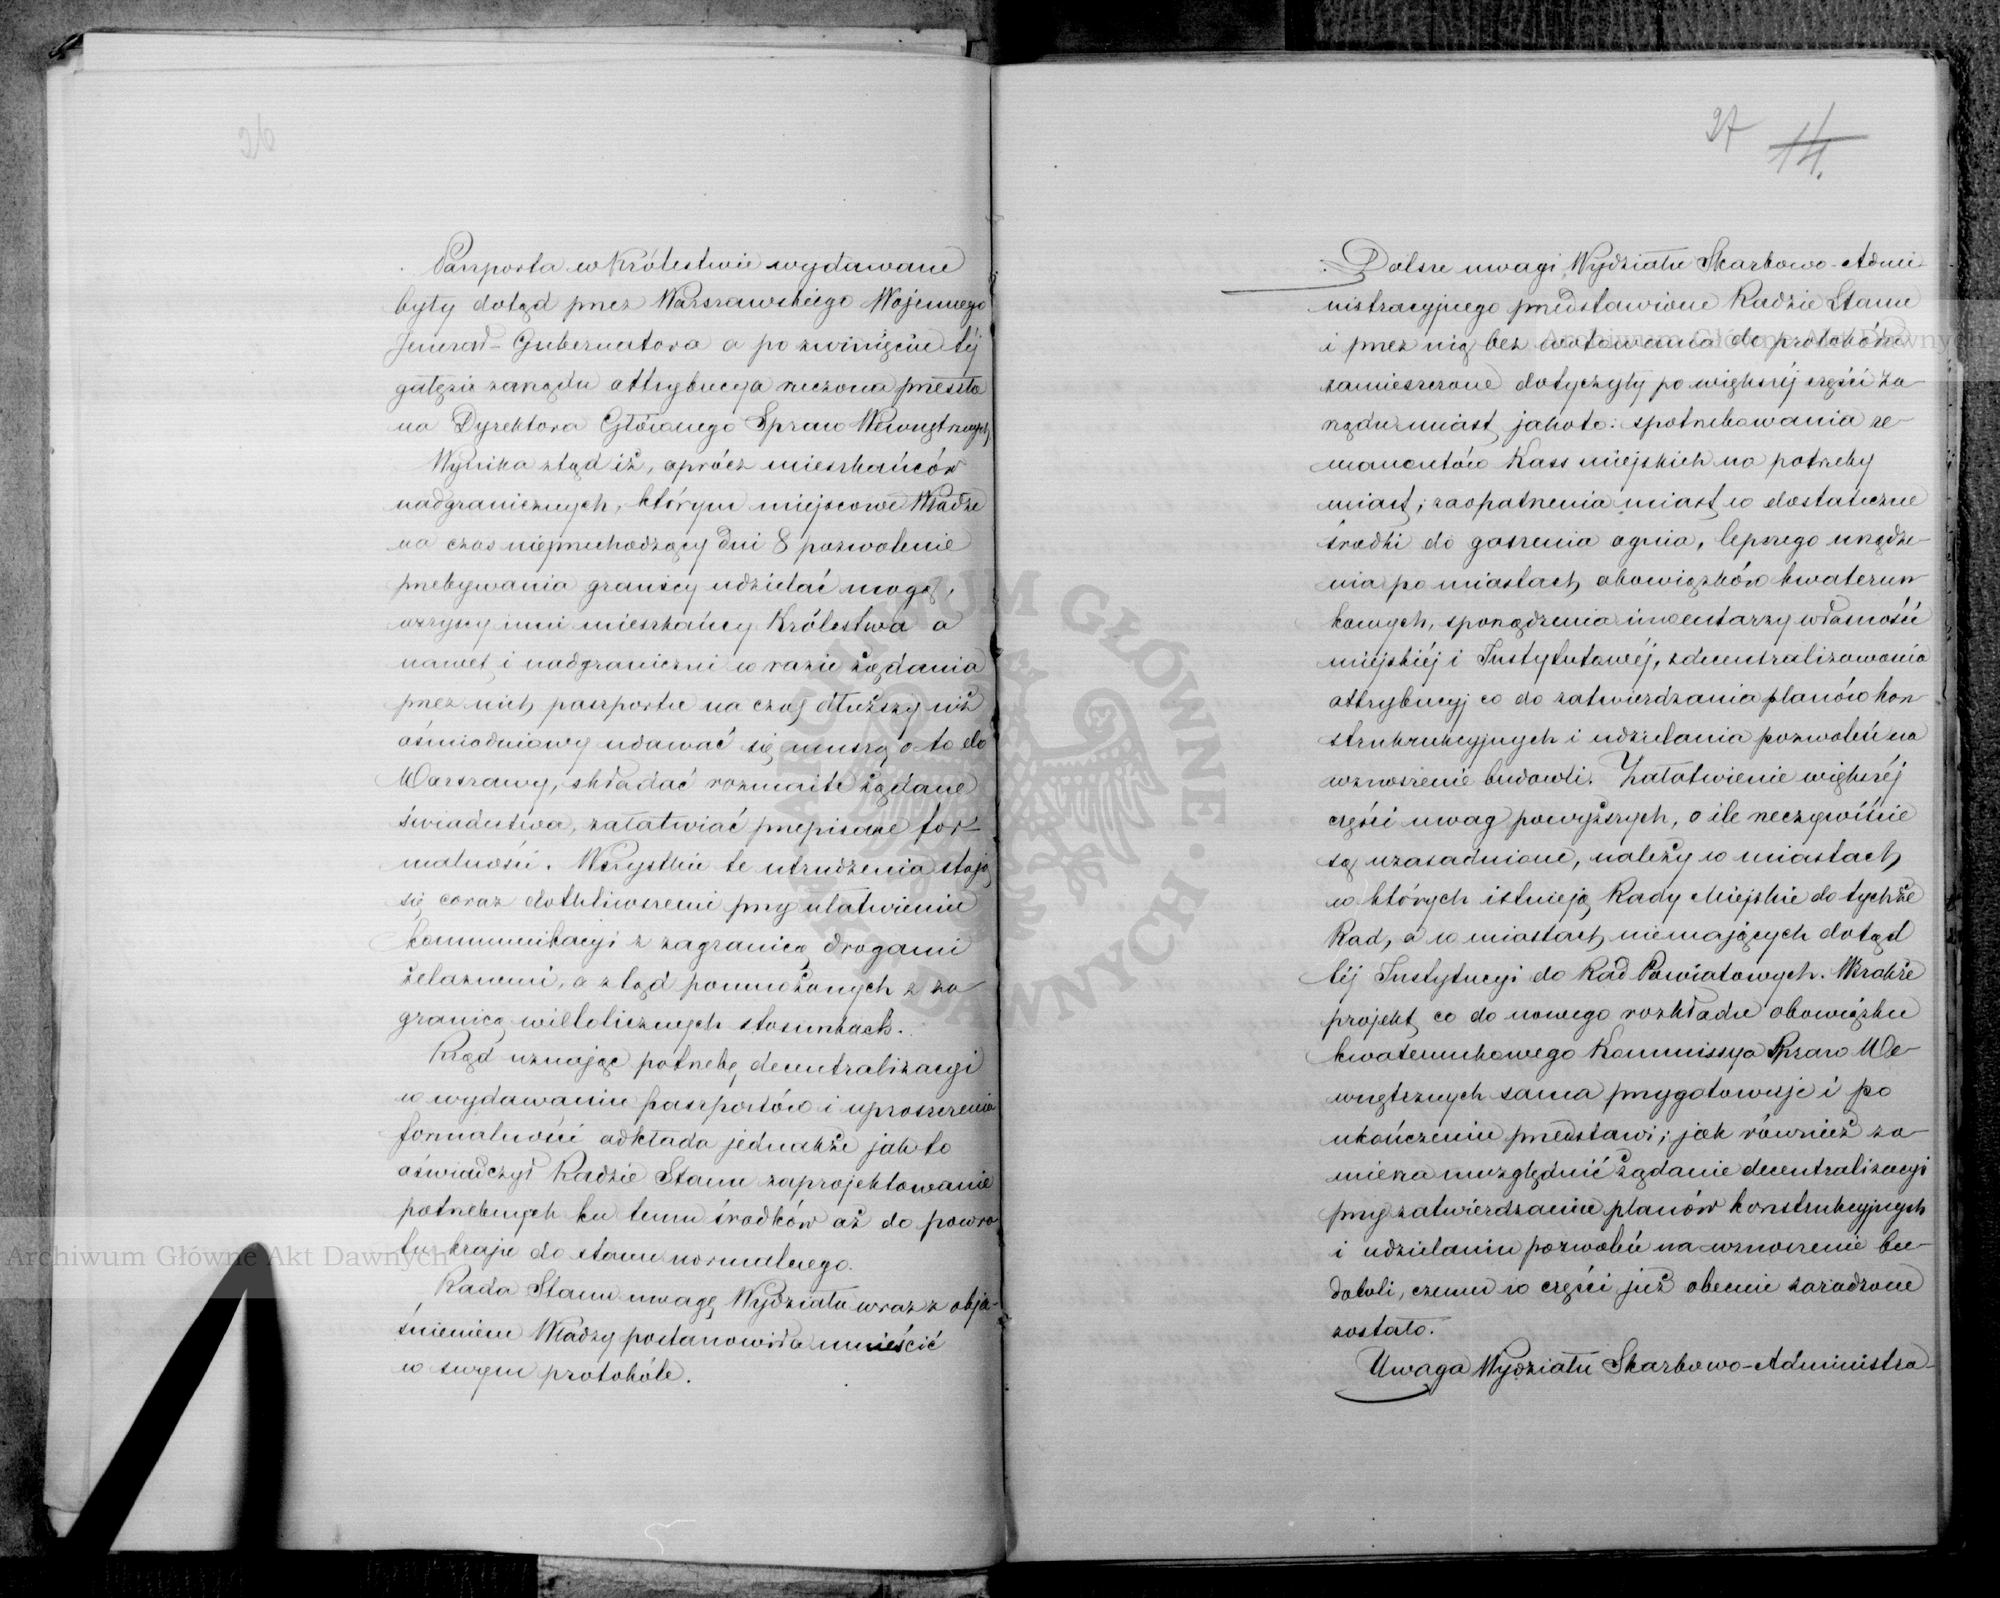 26
Passporta w Królestwie wydawane
były dotąd przez Warszawskiego Wojennego
Jenerał-Gubernatora a po zwinięciu téj
gałęzie zarządu attrybucya rzeczona przeszła
na Dyrektora Głównego Spraw Wewnętrznych
Wynika ztąd iż, oprócz mieszkańców
nadgranicznych, którym miejscowe Władze
na czas nieprzechodzący dni 8 pozwolenie
przebywania granicy udzielać mogą,
wszyscy inni mieszkańcy Królestwa a
nawet i nadgraniczni w razie żądania
przez nich passportu na czas dłuższy niż
ośmiodniowy udawać się muszą o to do
Warszawy, składać rozmaite żądane
świadectwa, załatwiać przepisane for-
malności. Wszystkie te utrudzenia stają
się coraz dotkliwszemi przy ułatwieniu
kommunikacyi z zagranicą drogami
żelaznemi, a ztąd pomnożonych z za
granicą wielolicznych stosunkach.
Rząd uznając potrzebę decentralizacyi
w wydawaniu passportów i uproszczenia
formalności odkłada jednakże jak to
oświadczył Radzie Stanu zaprojektowanie
potrzebnych ku temu środków aż do powro
tu kraju do stanu normalnego.
Rada Stanu uwagę Wydziału wraz z obja-
śnieniem Władzy postanowiła umieścić
w swym protokóle.
27 14.
Dalsze uwagi Wydziału Skarbowo-Admi-
nistracyjnego przedstawione Radzie Stanu
i przez nią bez wotowania do protokółu
zamieszczone dotyczyły po większéj części za-
rządu miast, jakoto: spotrzebowania re-
manentów Kass miejskich na potrzeby
miast; zaopatrzenia miast w dostateczne
środki do gaszenia ognia, lepszego urządze-
nia po miastach obowiązków kwaterun
kowych, sporządzenia inwentarzy własności
miejskiéj i Instytutowéj, zdecentralizowania
attrybucyj co do zatwierdzania planów kon
strukrukcyjnych i udzielania pozwoleń na
wznoszenie budowli. Załatwienie większéj
części uwag powyższych, o ile rzeczywiście
są uzasadnione, należy w miastach
w których istnieją Rady Miejskie do tychże
Rad, a w miastach niemających dotąd
téj Instytucyi do Rad Powiatowych. Wszakże
projekt co do nowego rozkładu obowiązku
kwaterunkowego Kommissya Spraw We-
wnętrznych sama przygotowuje i po
ukończeniu przedstawi; jak również za-
mierza uwzględnić żądanie decentralizacyi
przy zatwierdzaniu planów konstrukcyjnych
i udzielaniu pozwoleń na wznoszenie bu-
dowli, czemu w części już obecnie zaradzone
zostało.
Uwaga Wydziału Skarbowo-Administra-
Archiwum Główne Akt Dawnych
Archiwum Główne Akt Dawnych
ARCHIWUM GŁÓWNE AKT DAWNYCH